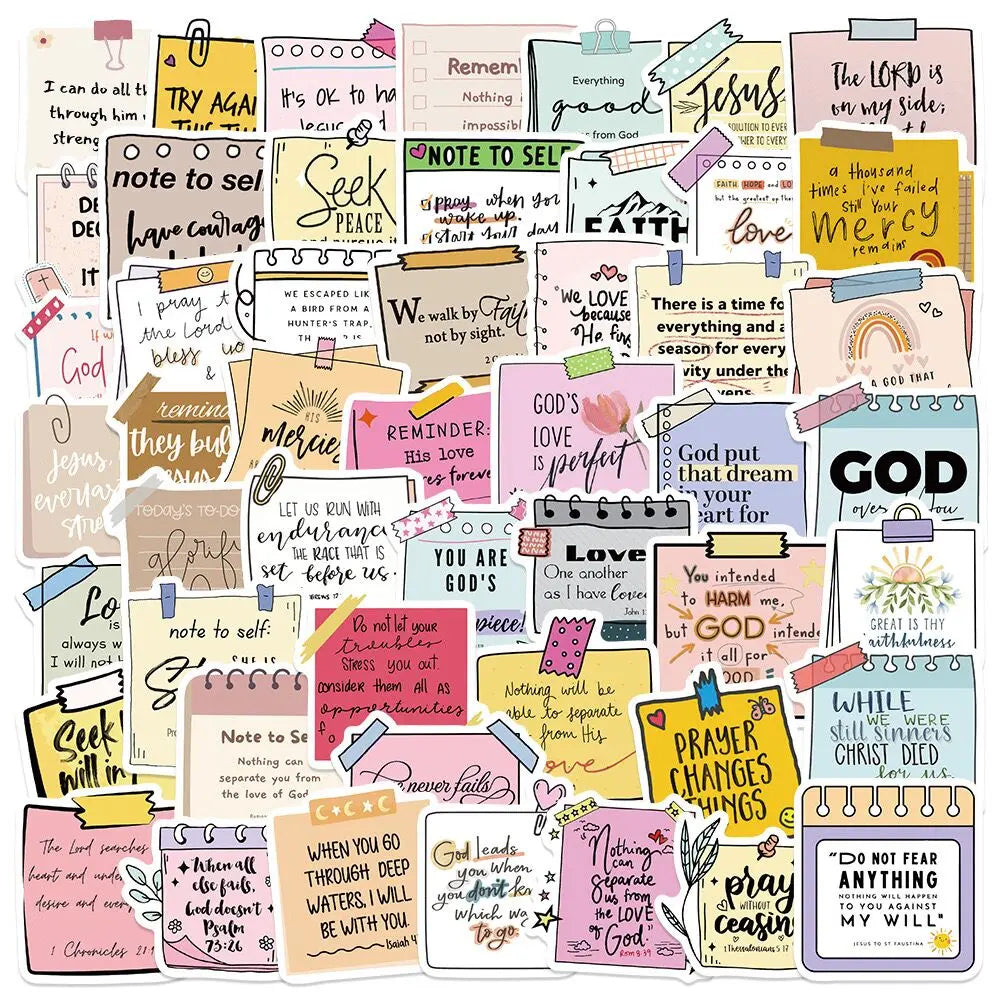 I can do all th
through him
streng
TRY AGAI
It's OK to ha
Jesus
Rememb
Nothing i
impossibl
Everything
good
from God
Jesus
SOLUTION TO EVER
The LORD is
on my side;
DE
DEC
IT
note to self
have courage
Seek
PEACE
and pursue it
NOTE TO SELF
pray when you
wake up.
start your day
FAITH
FAITH HOPE and LO
but the greatest of these
love
a thousand
times i've failed
Still Your
Mercy
remains
God
I pray t
the Lord
bless yo
&
WE ESCAPED LIK
A BIRD FROM A
HUNTER'S TRAP.
We walk by Faith
not by sight.
We LOVE
because
He firs
There is a time fo
everything and a
season for every
vity under the
vens
A GOD THAT
Jesus,
everlas
stre
reminde
they bul
Jesus t
HIS
mercies
REMINDER:
His love
es forever
GOD'S
LOVE
IS perfect
God put
that dream
in your
eart for
GOD
over you
TODAY'S TO-DO
glorify
LET US RUN WITH
endurance
THE RACE THAT IS
set before us.
YOU ARE
GOD'S
piece!
Love
One another
as I have loved
John 1
You intended
to HARM me,
but GOD intende
it all for
GOOD
GREAT IS THY
faithfulness
Lo
is
always w
I will not
note to self:
SHE IS
Do not let your
troubles
Stress you out.
consider them all as
opportunities
fo
Seek
will in
Note to Se
Nothing can
separate you from
the love of God
Nothing will be
able to separate
from His
love
PRAYER
CHANGES
THINGS
WHILE
WE WERE
still sinners
CHRIST DIED
for us
never fails
The Lord searches
heart and unde
desire and every
1 Chronicles
When all
else fails,
God doesn't
Psalm
73:26
WHEN YOU GO
THROUGH DEEP
WATERS, I WILL
BE WITH YOU.
Isaiah 4
God leads
you when
you don't kn
which wa
to go.
Nothing
can
Separate
Us from
the LOVE
of God."
Rom 8:39
pray
WITHOUT
ceasing
1 Thessalonians 5:17
"DO NOT FEAR
ANYTHING
NOTHING WILL HAPPEN
TO YOU AGAINST
MY WILL"
JESUS TO ST FAUSTINA